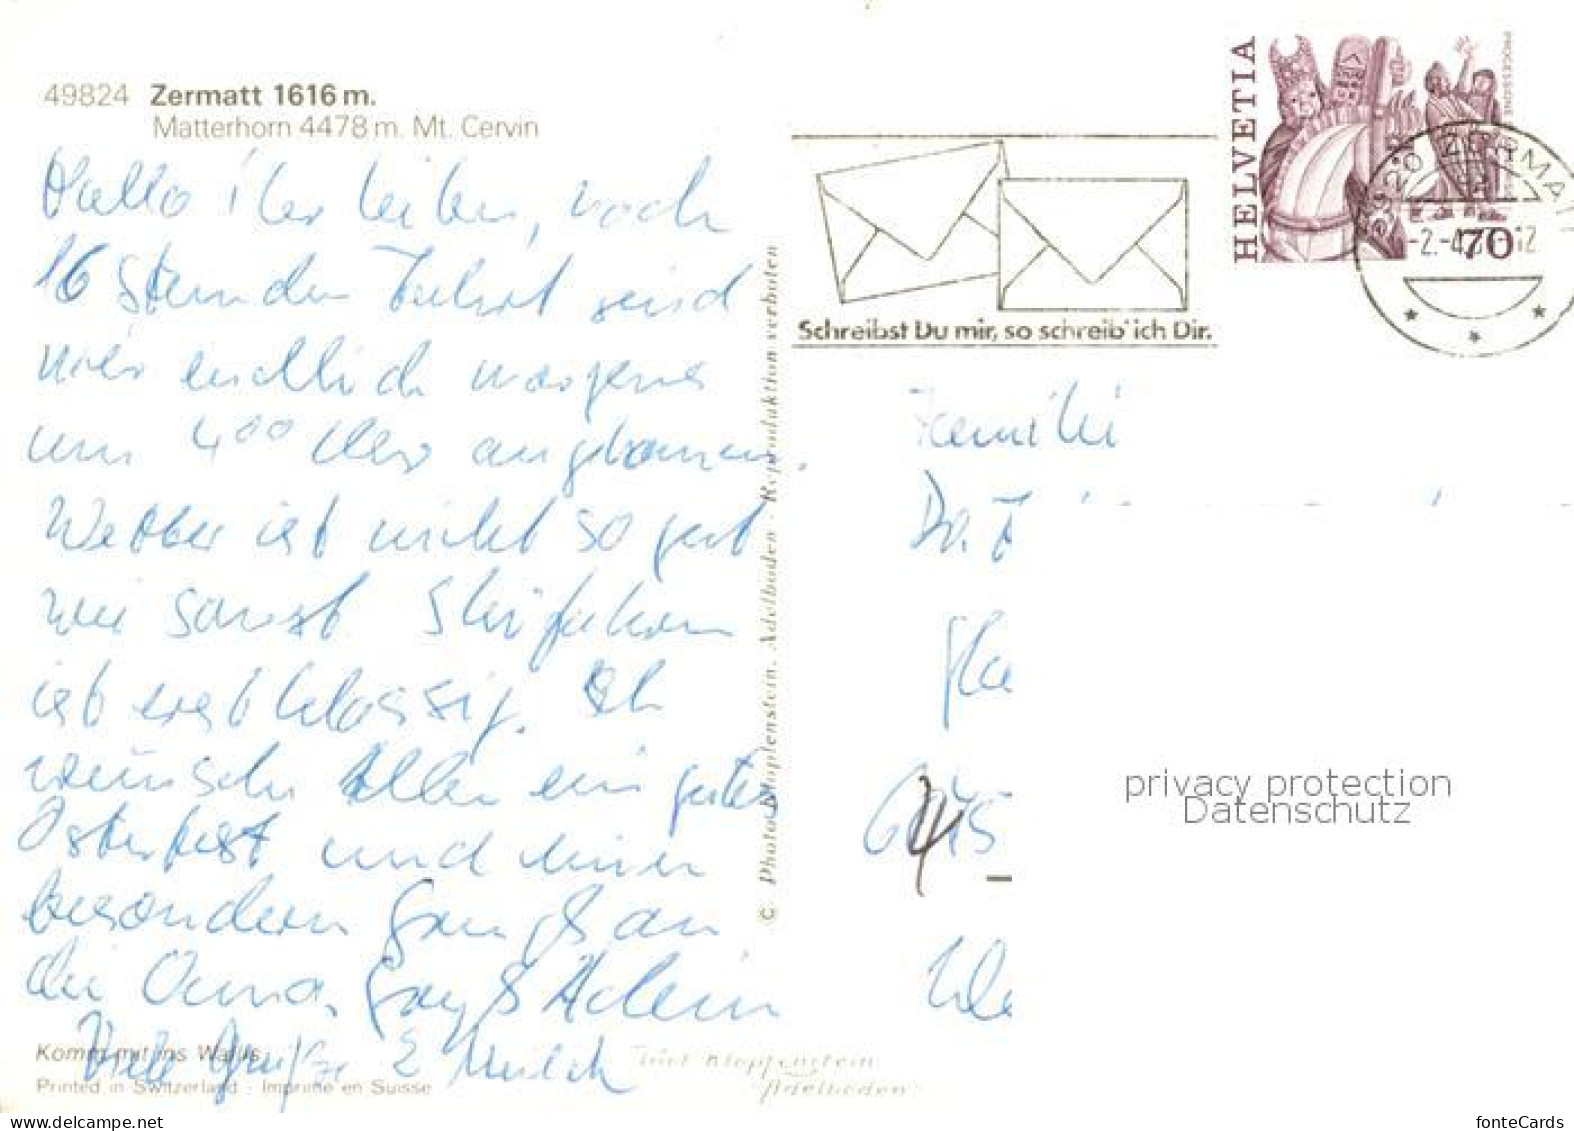 49824 Zermatt 1616 m.
Matterhorn 4478 m. Mt. Cervin
Hallo ihr lieben, nach
16 Stunden Fahrt sind
wir endlich morgens
um 4⁰⁰ Uhr angekommen.
Wetter ist nicht so gut
wie sonst. Skifahren
ist erstklassig. Ich
wünsche Allen ein gutes
Osterfest und einen
besonderen Gruß an
die Oma. Gruß Achim
Viele Grüße E.
Komm mit ins Wallis
Printed in Switzerland - Imprimé en Suisse
© Photo Klopfenstein, Adelboden - Reproduktion verboten
Photo Klopfenstein
Adelboden
Schreibst Du mir, so schreib' ich Dir.
HELVETIA
PROCESSIONE
70
3920 ZERMATT
-2.-4. -12
Familie
privacy protection
Datenschutz
www.delcampe.net
fonteCards